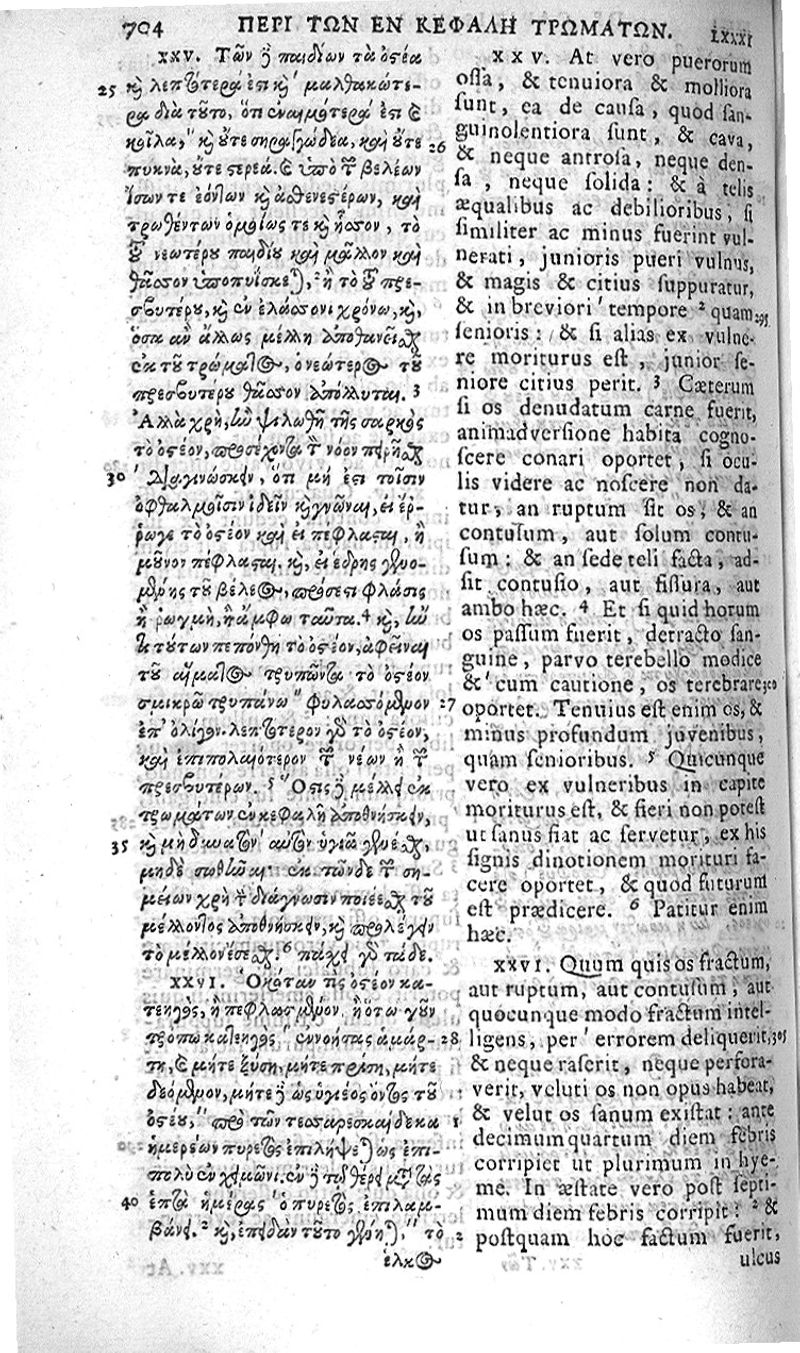 704 ΠΕΡΙ ΤΩΝ ΕΝ ΚΕΦΑΛΗ ΤΡΩΜΑΤΩΝ. LXXXI
XXV. Τῶν ἢ παιδίων τὰ ὀϛέα
25 κỳ λεπτότερά ἐϛι κỳ μαλθακώτε-
ρα διὰ τῦτο, ὅτι ἐναιμότερά ἐϛι ϗ
κοῖλα, κỳ ὔτε σηραγγώδεα, καὶ ὔτε
πυκνὰ, ὔτε ϛερεά. ϗ ὑπὸ τ βελέων
ἴσων τε ἐόντων κỳ ἀσθενεϛέρων, καὶ
τρωθέντων ὁμοίως τε κỳ ἧσσον, τὸ
τῦ νεωτέρυ παιδίυ καὶ μᾶλλον καὶ
θᾶσσον ὑποπυΐσκε), ² ἢ τὸ τῦ πρε-
σβυτέρυ, κỳ ἐν ἐλάσσονι χρόνῳ, κỳ,
ὅσα ἂν ἄλλως μέλλῃ ἀποθανεῖσθ
ἐκ τῦ τρώματος, ὁ νεώτερος τῦ
πρεσβυτέρυ θᾶσσον ἀπόλλυται. ³
Ἀλλὰ χρὴ, ἢν ψιλωθῇ τῆς σαρκὸς
τὸ ὀϛέον, προσέχοντα τ νόον πειρῆσθ
30 διαγινώσκειν, ὅτι μή ἐϛι τοῖσιν
ὀφθαλμοῖσιν ἰδεῖν κỳ γνῶναι, εἰ ἔρ-
ρωγε τὸ ὀϛέον καὶ εἰ πέφλασται, ἢ
μῦνον πέφλασται. κỳ, εἰ ἕδρης γενο-
μένης τῦ βέλεος, πρόσεϛι φλάσις
ἢ ῥωγμὴ, ἢ ἄμφω ταῦτα. ⁴ κỳ, ἢν
τι τύτων πεπόνθῃ τὸ ὀϛέον, ἀφεῖναι
τῦ αἵματος τρυπῶντα τὸ ὀϛέον
σμικρῷ τρυπάνῳ φυλασσόμενον
ἐπ' ὀλίγον. λεπτότερον γὸ τὸ ὀϛέον,
καὶ ἐπιπολαιότερον τ νέων ἢ τ
πρεσβυτέρων. ⁵ Ὅϛις ἢ μέλλει ἐκ
τρωμάτων ἐν κεφαλῇ ἀποθνήσκειν,
35 κỳ μὴ δυνατὸν αὐτὸν ὑγιᾶ γενέσθ,
μηδὲ σωθῆναι· ἐκ τῶνδε τ ση-
μείων χρὴ τ διάγνωσιν ποιέεσθ τῦ
μέλλοντος ἀποθνήσκειν, κỳ προλέγειν
τὸ μέλλον ἔσεσθ. ⁶ πάχει γὸ τάδε.
XXVI. Ὁκόταν τὶς ὀϛέον κα-
τεηγὸς, ἢ πεφλασμένον, ἢ ὅτῳ γῦν
τρόπῳ κατεηγὸς ἐννοήσας ἁμάρ-
τῃ, ϗ μήτε ξύσῃ, μήτε πρίσῃ, μήτε
δεόμενον, μήτε ἢ ὡς ὑγιέος ὄντος τῦ
ὀϛέυ, πρὸ τῶν τεσσαρεσκαίδεκα
ἡμερέων πυρετὸς ἐπιλήψε) ὡς ἐπι-
πολὺ ἐν χειμῶνι. ἐν ἢ τῷ θέρει μετὰ τὰς
40 ἑπτὰ ἡμέρας ὁ πυρετὸς ἐπιλαμ-
βάνει. ² κỳ, ἐπειδὰν τῦτο γένη), τὸ
ἕλκος
XXV. At vero puerorum
ossa, & tenuiora & molliora
sunt, ea de causa, quod san-
guinolentiora sunt, & cava,
26 & neque antrosa, neque den-
sa, neque solida: & à telis
æqualibus ac debilioribus, si
similiter ac minus fuerint vul-
nerati, junioris pueri vulnus,
& magis & citius suppuratur,
& in breviori tempore ² quam 295
senioris: & si alias ex vulne-
re moriturus est, junior se-
niore citius perit. ³ Cæterum
si os denudatum carne fuerit,
animadversione habita cogno-
scere conari oportet, si ocu-
lis videre ac noscere non da-
tur, an ruptum sit os, & an
contusum, aut solum contu-
sum: & an sede teli facta, ad-
sit contusio, aut fissura, aut
ambo hæc. ⁴ Et si quid horum
os passum fuerit, detracto san-
guine, parvo terebello modice
& cum cautione, os terebrare 300
27 oportet. Tenuius est enim os, &
minus profundum juvenibus,
quam senioribus. ⁵ Quicunque
vero ex vulneribus in capite
moriturus est, & fieri non potest
ut sanus fiat ac servetur, ex his
signis dinotionem morituri fa-
cere oportet, & quod futurum
est prædicere. ⁶ Patitur enim
hæc.
XXVI. Quum quis os fractum,
aut ruptum, aut contusum, aut
quocunque modo fractum intel-
28 ligens, per errorem deliquerit, 305
& neque raserit, neque perfora-
verit, veluti os non opus habeat,
1 & velut os sanum existat: ante
decimum quartum diem febris
corripiet ut plurimum in hye-
me. In æstate vero post septi-
mum diem febris corripit: ² &
2 postquam hoc factum fuerit,
ulcus